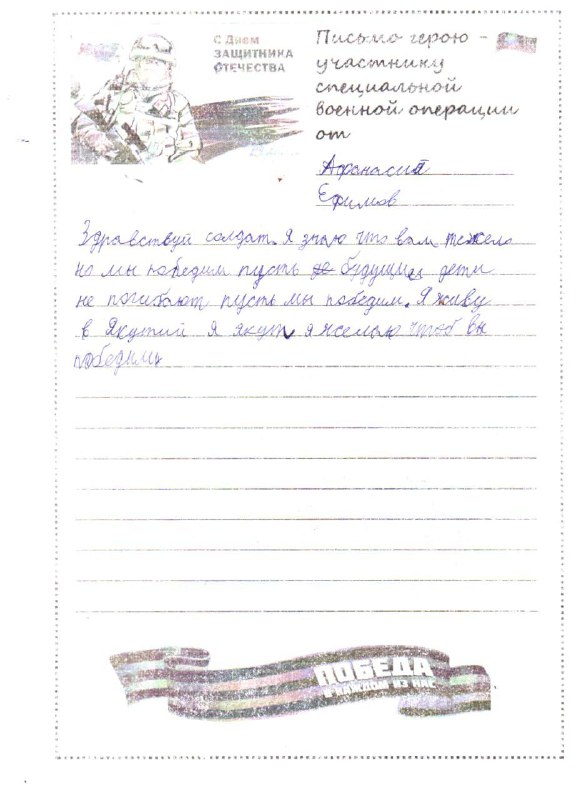 С Днем
ЗАЩИТНИКА
ОТЕЧЕСТВА
Письмо герою -
участнику
специальной
военной операции
от
Афанасий
Ефимов
Здравствуй солдат. Я знаю что вам тежело
но мы победим пусть не будущии дети
не погибают пусть мы победим. Я живу
в Якутий Я якут я желаю чтоб вы
победили
ПОБЕДА
В КАЖДОМ ИЗ НАС